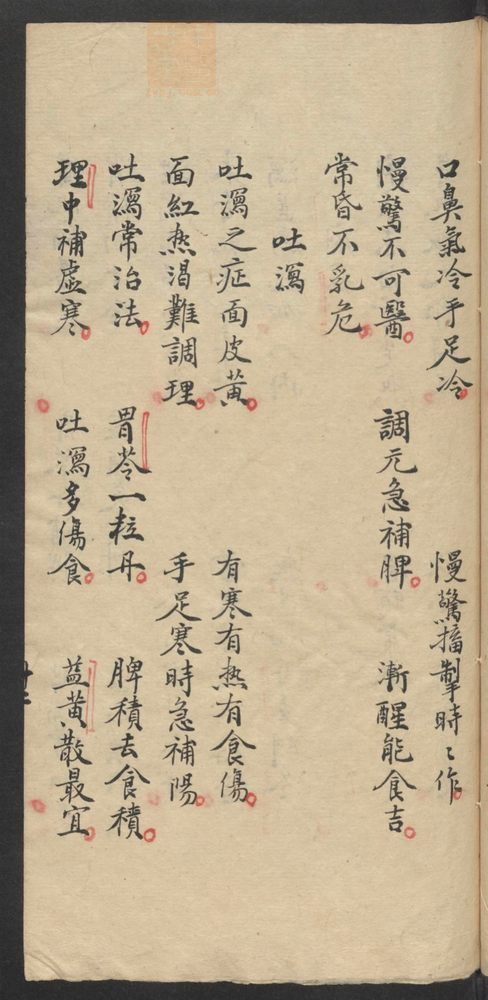 口鼻氣冷手足冷 慢驚搐掣時〻作
慢驚不可醫 調元急補脾 漸醒能食吉
常昏不乳危
吐瀉
吐瀉之症面皮黃 有寒有熱有食傷
面紅熱渴難調理 手足寒時急補陽
吐瀉常治法 胃苓一粒丹 脾積去食積
理中補虛寒 吐瀉多傷食 益黄散最宜
十二